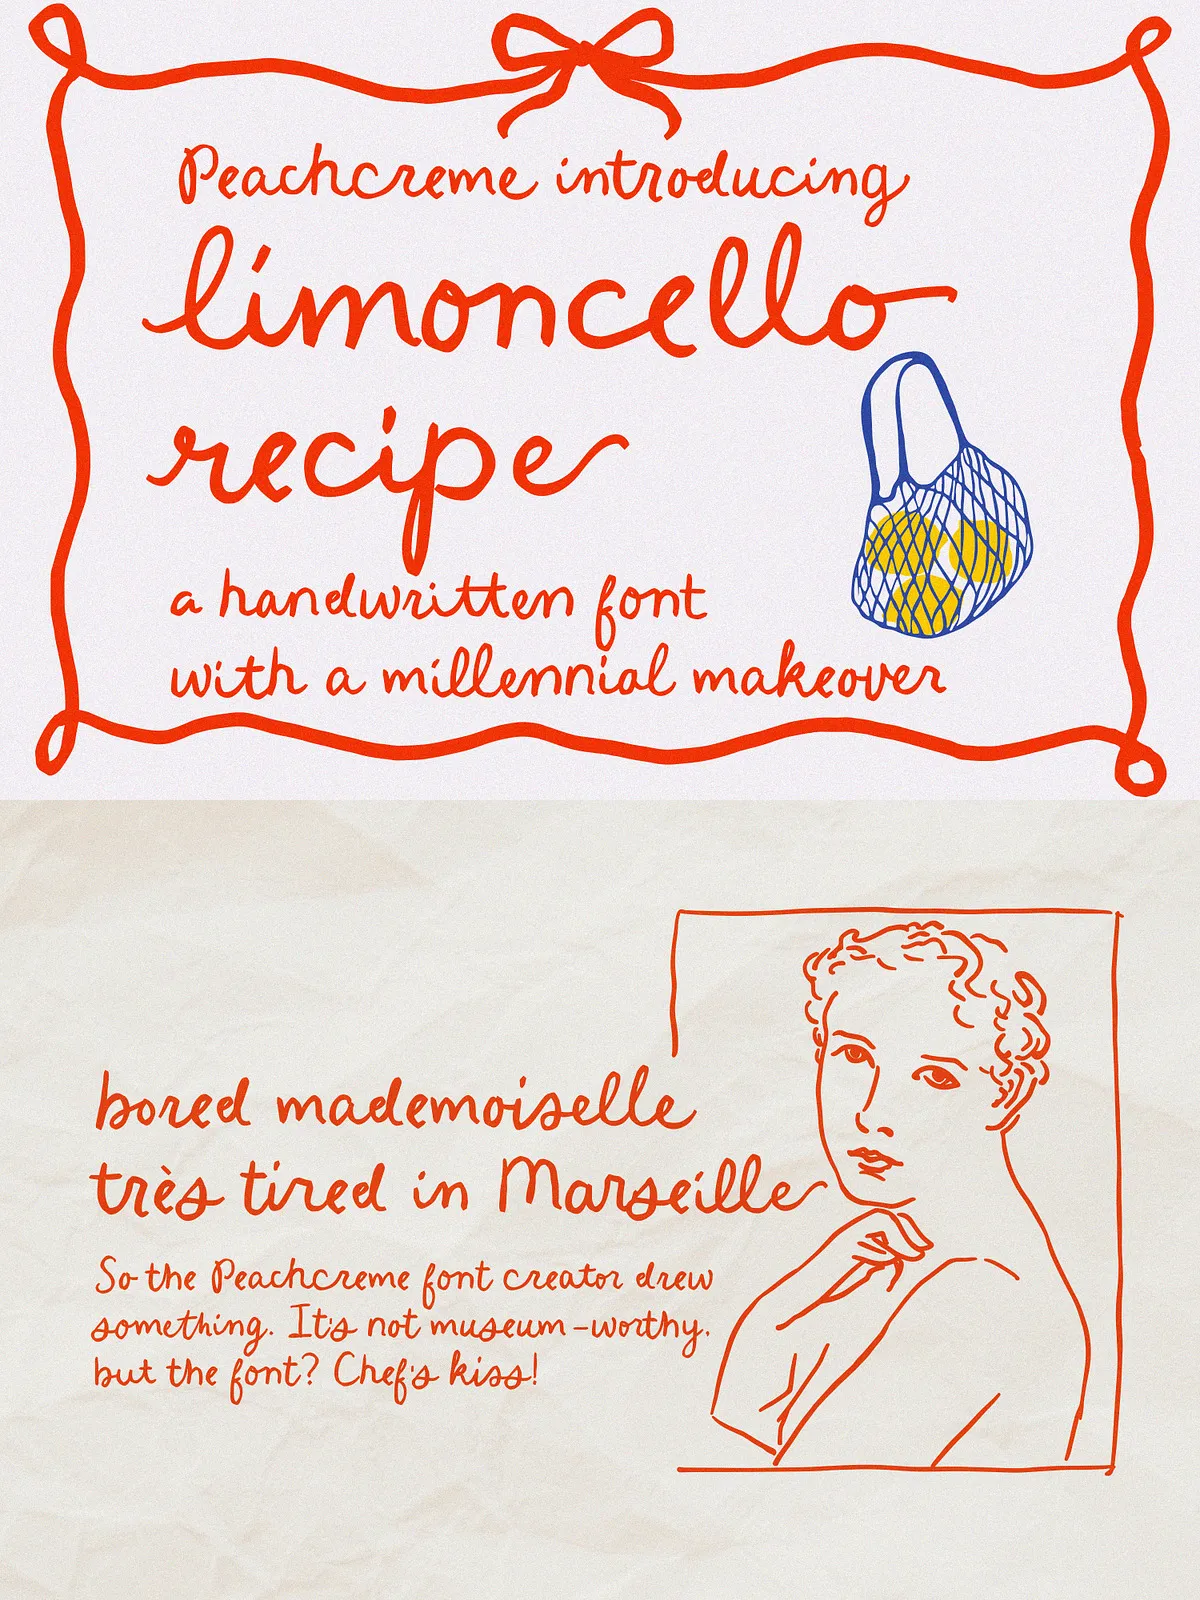 Peachcreme introducing
limoncello
recipe
a handwritten font
with a millennial makeover
bored mademoiselle
très tired in Marseille
So the Peachcreme font creator drew
something. It's not museum-worthy,
but the font? Chef's kiss!